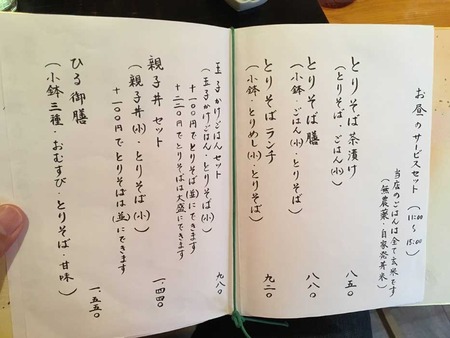 お昼のサービスセット(11:00〜15:00)
当店のごはんは全て玄米です
(無農薬・自家発芽米)
とりそば茶漬け 八五〇
(とりそば・ごはん(小))
とりそば膳 八八〇
(小鉢・ごはん(小)・とりそば)
とりそばランチ 九二〇
(小鉢・とりめし(小)・とりそば)
玉子かけごはんセット 九八〇
(玉子かけごはん・とりそば(小))
+一〇〇円でとりそば(並)にできます
+二二〇円でとりそばは大盛にできます
親子丼セット 一、四四〇
(親子丼(小)・とりそば(小))
+一〇〇円でとりそばは(並)にできます
ひる御膳 一、五五〇
(小鉢三種・おむすび・とりそば・甘味)